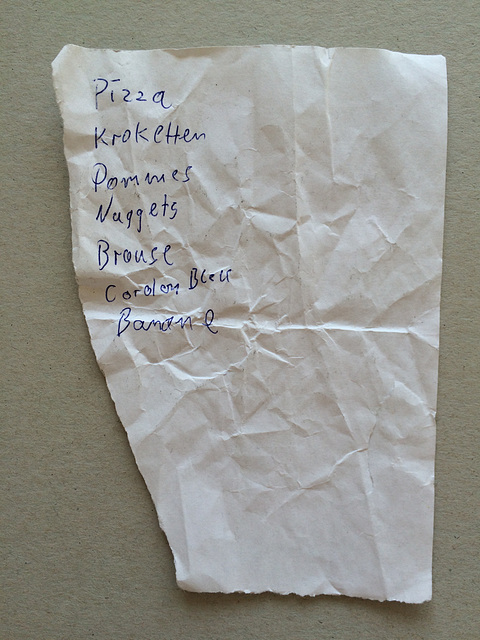 Pizza
Kroketten
Pommes
Nuggets
Brause
Cordon Bleu
Banane